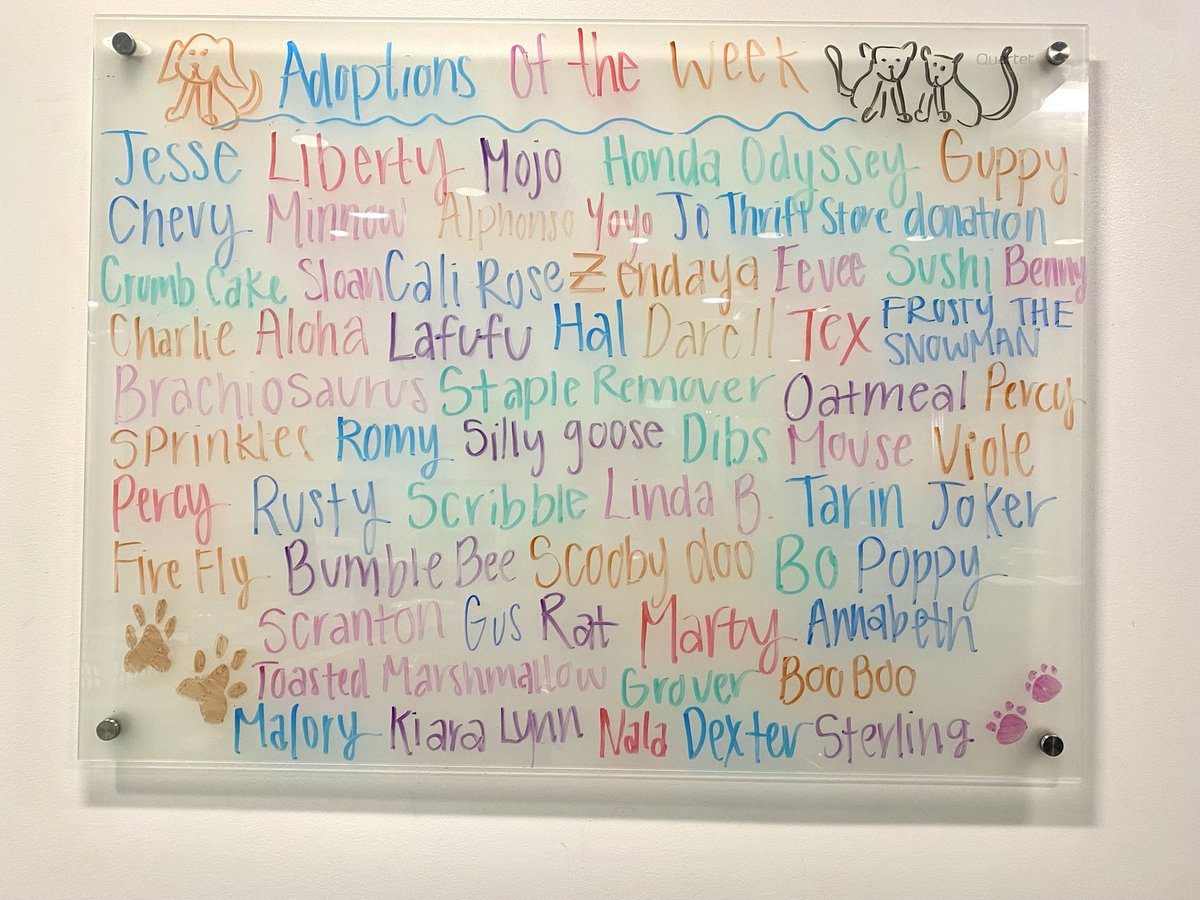 Adoptions of the week
Quartet
Jesse Liberty Mojo Honda Odyssey Guppy
Chevy Minnow Alphonso Yoyo Jo Thrift Store donation
Crumb Cake Sloan Cali Rose Zendaya Eevee Sushi Benny
Charlie Aloha Lafufu Hal Darcll Tex FROSTY THE
SNOWMAN
Brachiosaurus Staple Remover Oatmeal Percy
Sprinkles Romy Silly goose Dibs Mouse Viole
Percy Rusty Scribble Linda B. Tarin Joker
Fire Fly Bumble Bee Scooby doo Bo Poppy
Scranton Gus Rat Marty Annabeth
Toasted Marshmallow Grover Boo Boo
Malory Kiara Lynn Nala Dexter Sterling